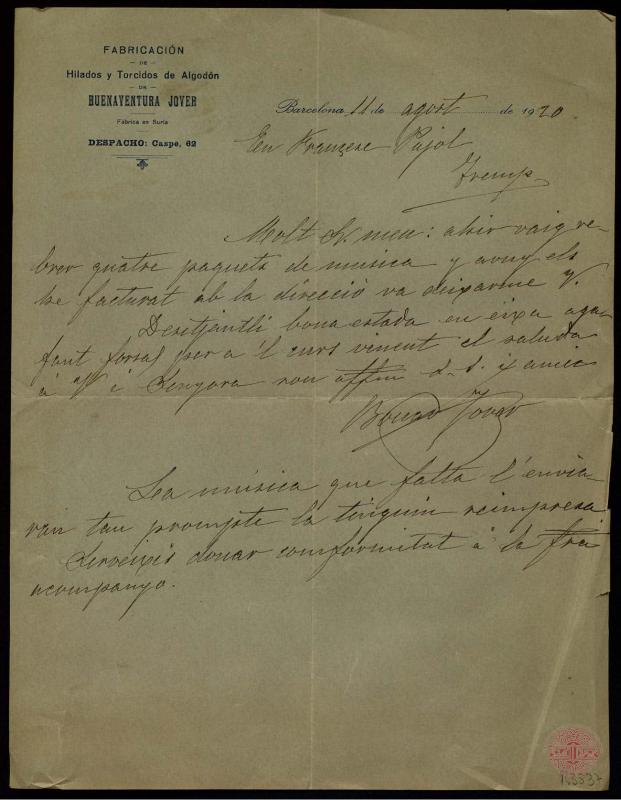 FABRICACIÓN
— DE —
Hilados y Torcidos de Algodón
— DE —
BUENAVENTURA JOVER
Fábrica en Suria
DESPACHO: Caspe, 62
Barcelona 11 de agost de 1920.
En Françesc Pujol
Tremp
Molt Sr. meu: ahir vaig re-
brer quatre paquets de musica y avuy els
he facturat ab la direcció va deixarme V.
Desitjantli bona estada en eixa aga-
fant forsas per a 'l curs vinent el saluda
á V. i Senyora son affm s. s. y amic
Bonav Jover
La música que falta l'envia-
ran tan prompte la tinguin reimpresa
Serveixis donar comformitat á la fra
acompanyo.
113337